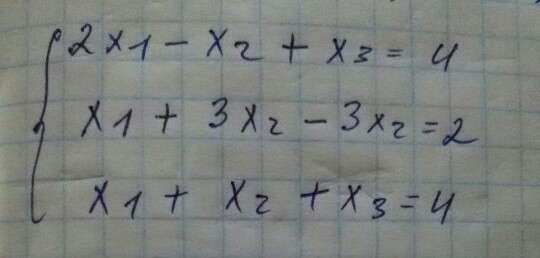 2x1 - x2 + x3 = 4
x1 + 3x2 - 3x2 = 2
x1 + x2 + x3 = 4